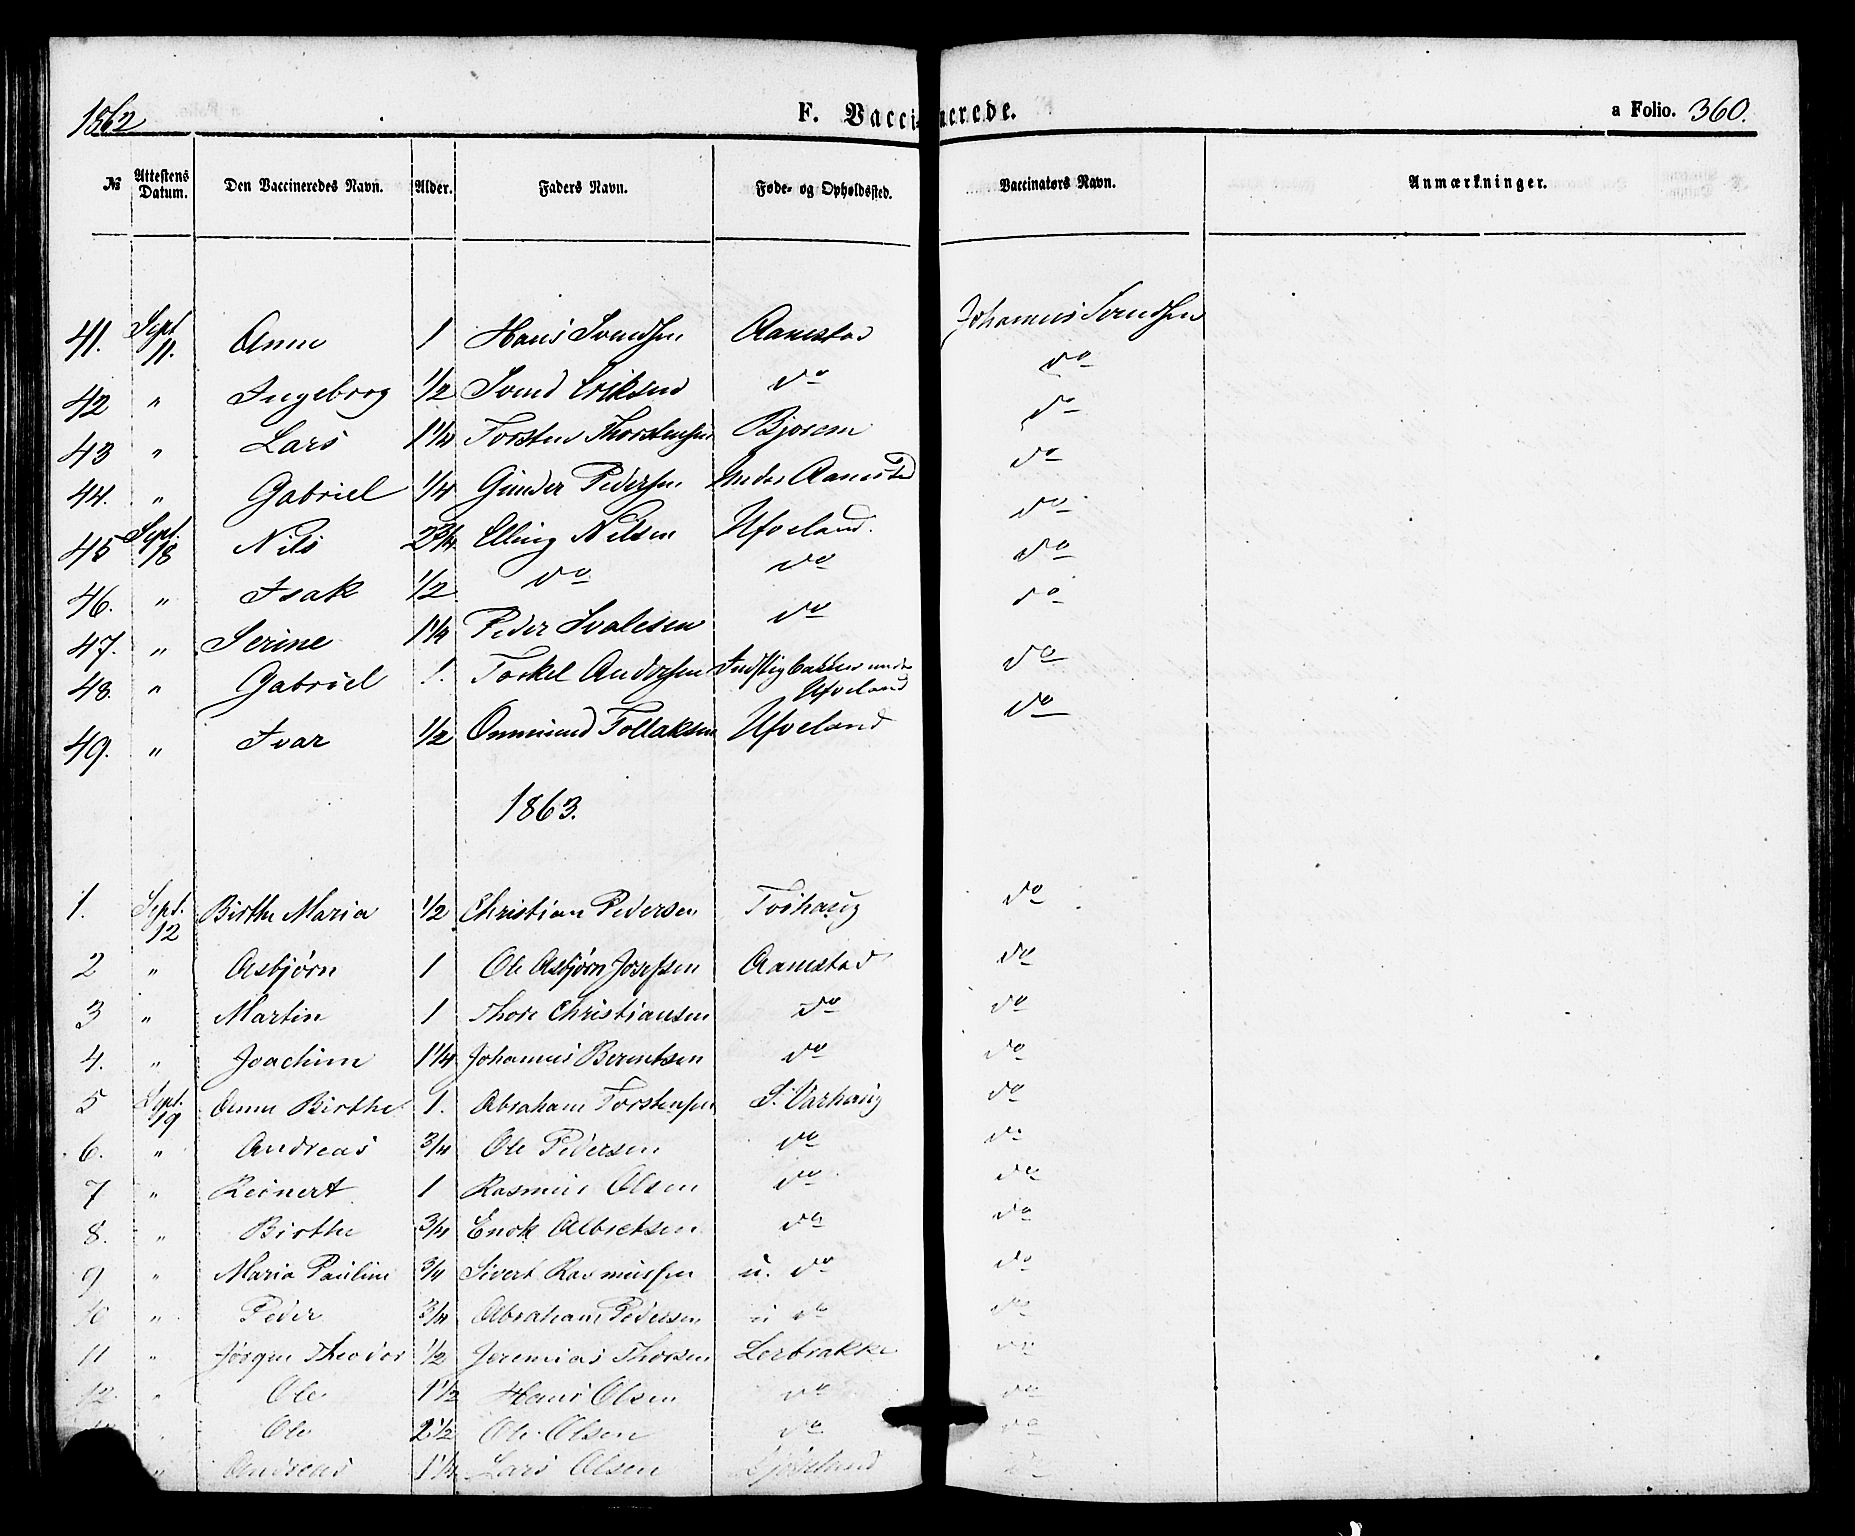 1862 F. Vaccinerede. a Folio. 360.
№ Attestens Datum. Den Vaccineredes Navn. Alder. Faders Navn. Føde- og Opholdssted. Vaccinatørs Navn. Anmærkninger.
41. Sept 11. Anne 1 Hans Svendsen Aanestad Johannes Svendsen
42 " Ingeborg 1/2 Svend Eriksen do do
43 " Lars 1 1/4 Torsten Thorstensen Bjorem do
44. " Gabriel 1/4 Gunder Pedersen under Aanestad do
45 Sept. 18 Nils 2 3/4 Elling Nilsen Ufveland. do
46. " Isak 1/2 do do do
47. " Serine 1 1/4 Peder Svalesen do do
48. " Gabriel 1. Torkel Andersen under Ufveland do
49. " Ivar 1/2 Ommund Tollaksen Ufveland do
1863.
1. Sept. 12 Birthe Maria 1/2 Christian Pedersen do
2 " Asbjørn 1 Ole Asbjørn Josefsen Aanestad do
3 " Martin 1 Thore Christiansen do do
4. " Joachim 1 1/4 Johannes Berentsen do do
5 Sept. 19 Anne Birthe 1. Abraham Torstensen S. Varhaug do
6. " Andreas 3/4 Ole Pedersen do do
7 " Reinert 1 Rasmus Olsen do do
8. " Birthe 3/4 Enok Albretsen do do
9 " Maria Pauline 3/4 Sivert Rasmussen u. do do
10 " Peder 3/4 Abraham Pedersen u do do
11 " Jørgen Theodor 1/2 Jeremias Thorsen Lerbrække do
12. " Ole 1 1/2 Hans Olsen do do
" Ole 2 1/2 Ole Olsen do do
" Andreas 1 1/4 Lars Olsen do